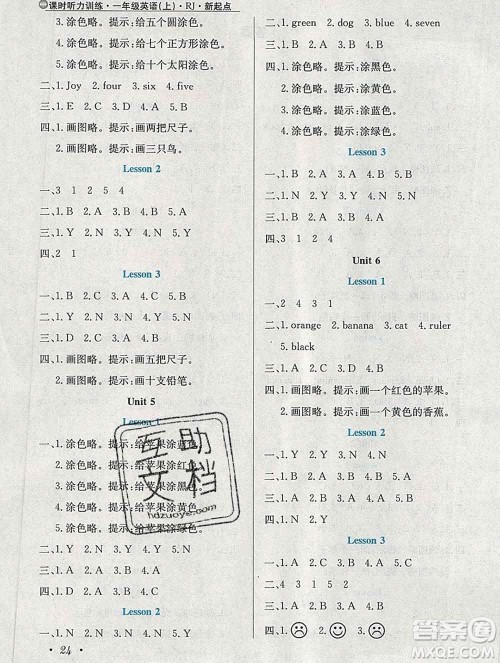 课时听力训练·一年级英语(上)·RJ·新起点
3.涂色略。提示:给五个圆涂色。
4.涂色略。提示:给七个正方形涂色。
5.涂色略。提示:给十个太阳涂色。
二、1.Joy 2.four 3.six 4.five
三、1.E 2.C 3.A 4.D 5.B
四、1.画图略。提示:画两把尺子。
2.画图略。提示:画三只鸟。
Lesson 2
一、3 1 2 5 4
二、1.B 2.A 3.A 4.B 5.A
三、1.Y 2.N 3.Y 4.Y 5.N
四、2 1
Lesson 3
一、1.B 2.C 3.C 4.A 5.C
二、1.Y 2.N 3.Y 4.N 5.Y
三、1.B 2.D 3.E 4.A 5.C
四、1.画图略。提示:画五把尺子。
2.画图略。提示:画十支铅笔。
Unit 5
Lesson 1
一、1.涂色略。提示:给苹果涂蓝色。
2.涂色略。提示:给苹果涂红色。
3.涂色略。提示:给苹果涂
4.涂色略。提示:给苹果涂黄色。
5.涂色略。提示:给苹果涂绿色。
二、1.N 2.Y 3.N 4.Y 5.N
三、1.D 2.C 3.A 4.B 5.E
Lesson 2
一、1.B 2.A 3.A 4.B 5.B
24
二、1.green 2.dog 3.blue 4.seven
三、1.Y 2.Y 3.N 4.Y 5.N
四、1.涂色略。提示:涂黑色。
2.涂色略。提示:涂黄色。
3.涂色略。提示:涂蓝色。
4.涂色略。提示:涂绿色。
Lesson 3
一、1.B 2.A 3.B 4.A 5.A
二、1.N 2.Y 3.Y 4.N 5.Y
三、1.B 2.A 3.A 4.B 5.B
四、3 4 2 1
Unit 6
Lesson 1
一、2 4 3 1
二、1.orange 2.banana 3.cat 4.ruler
5.black
三、1.Y 2.N 3.Y 4.N 5.N
四、1.画图略。提示:画一个红色的苹果。
2.画图略。提示:画一个黄色的香蕉。
Lesson 2
一、1.B 2.A 3.B 4.A 5.B
二、1.B 2.A 3.B 4.B 5.A
三、1.D 2.B 3.A 4.C 5.E
四、1.N 2.Y
Lesson 3
一、1.Y 2.N 3.N 4.N 5.Y
二、1.A 2.B 3.A 4.B 5.B
三、1.A 2.A 3.B 4.B 5.A
四、1. 2. 3.
互助文档
hdzuoye.com
作业帮
MXQE.COM